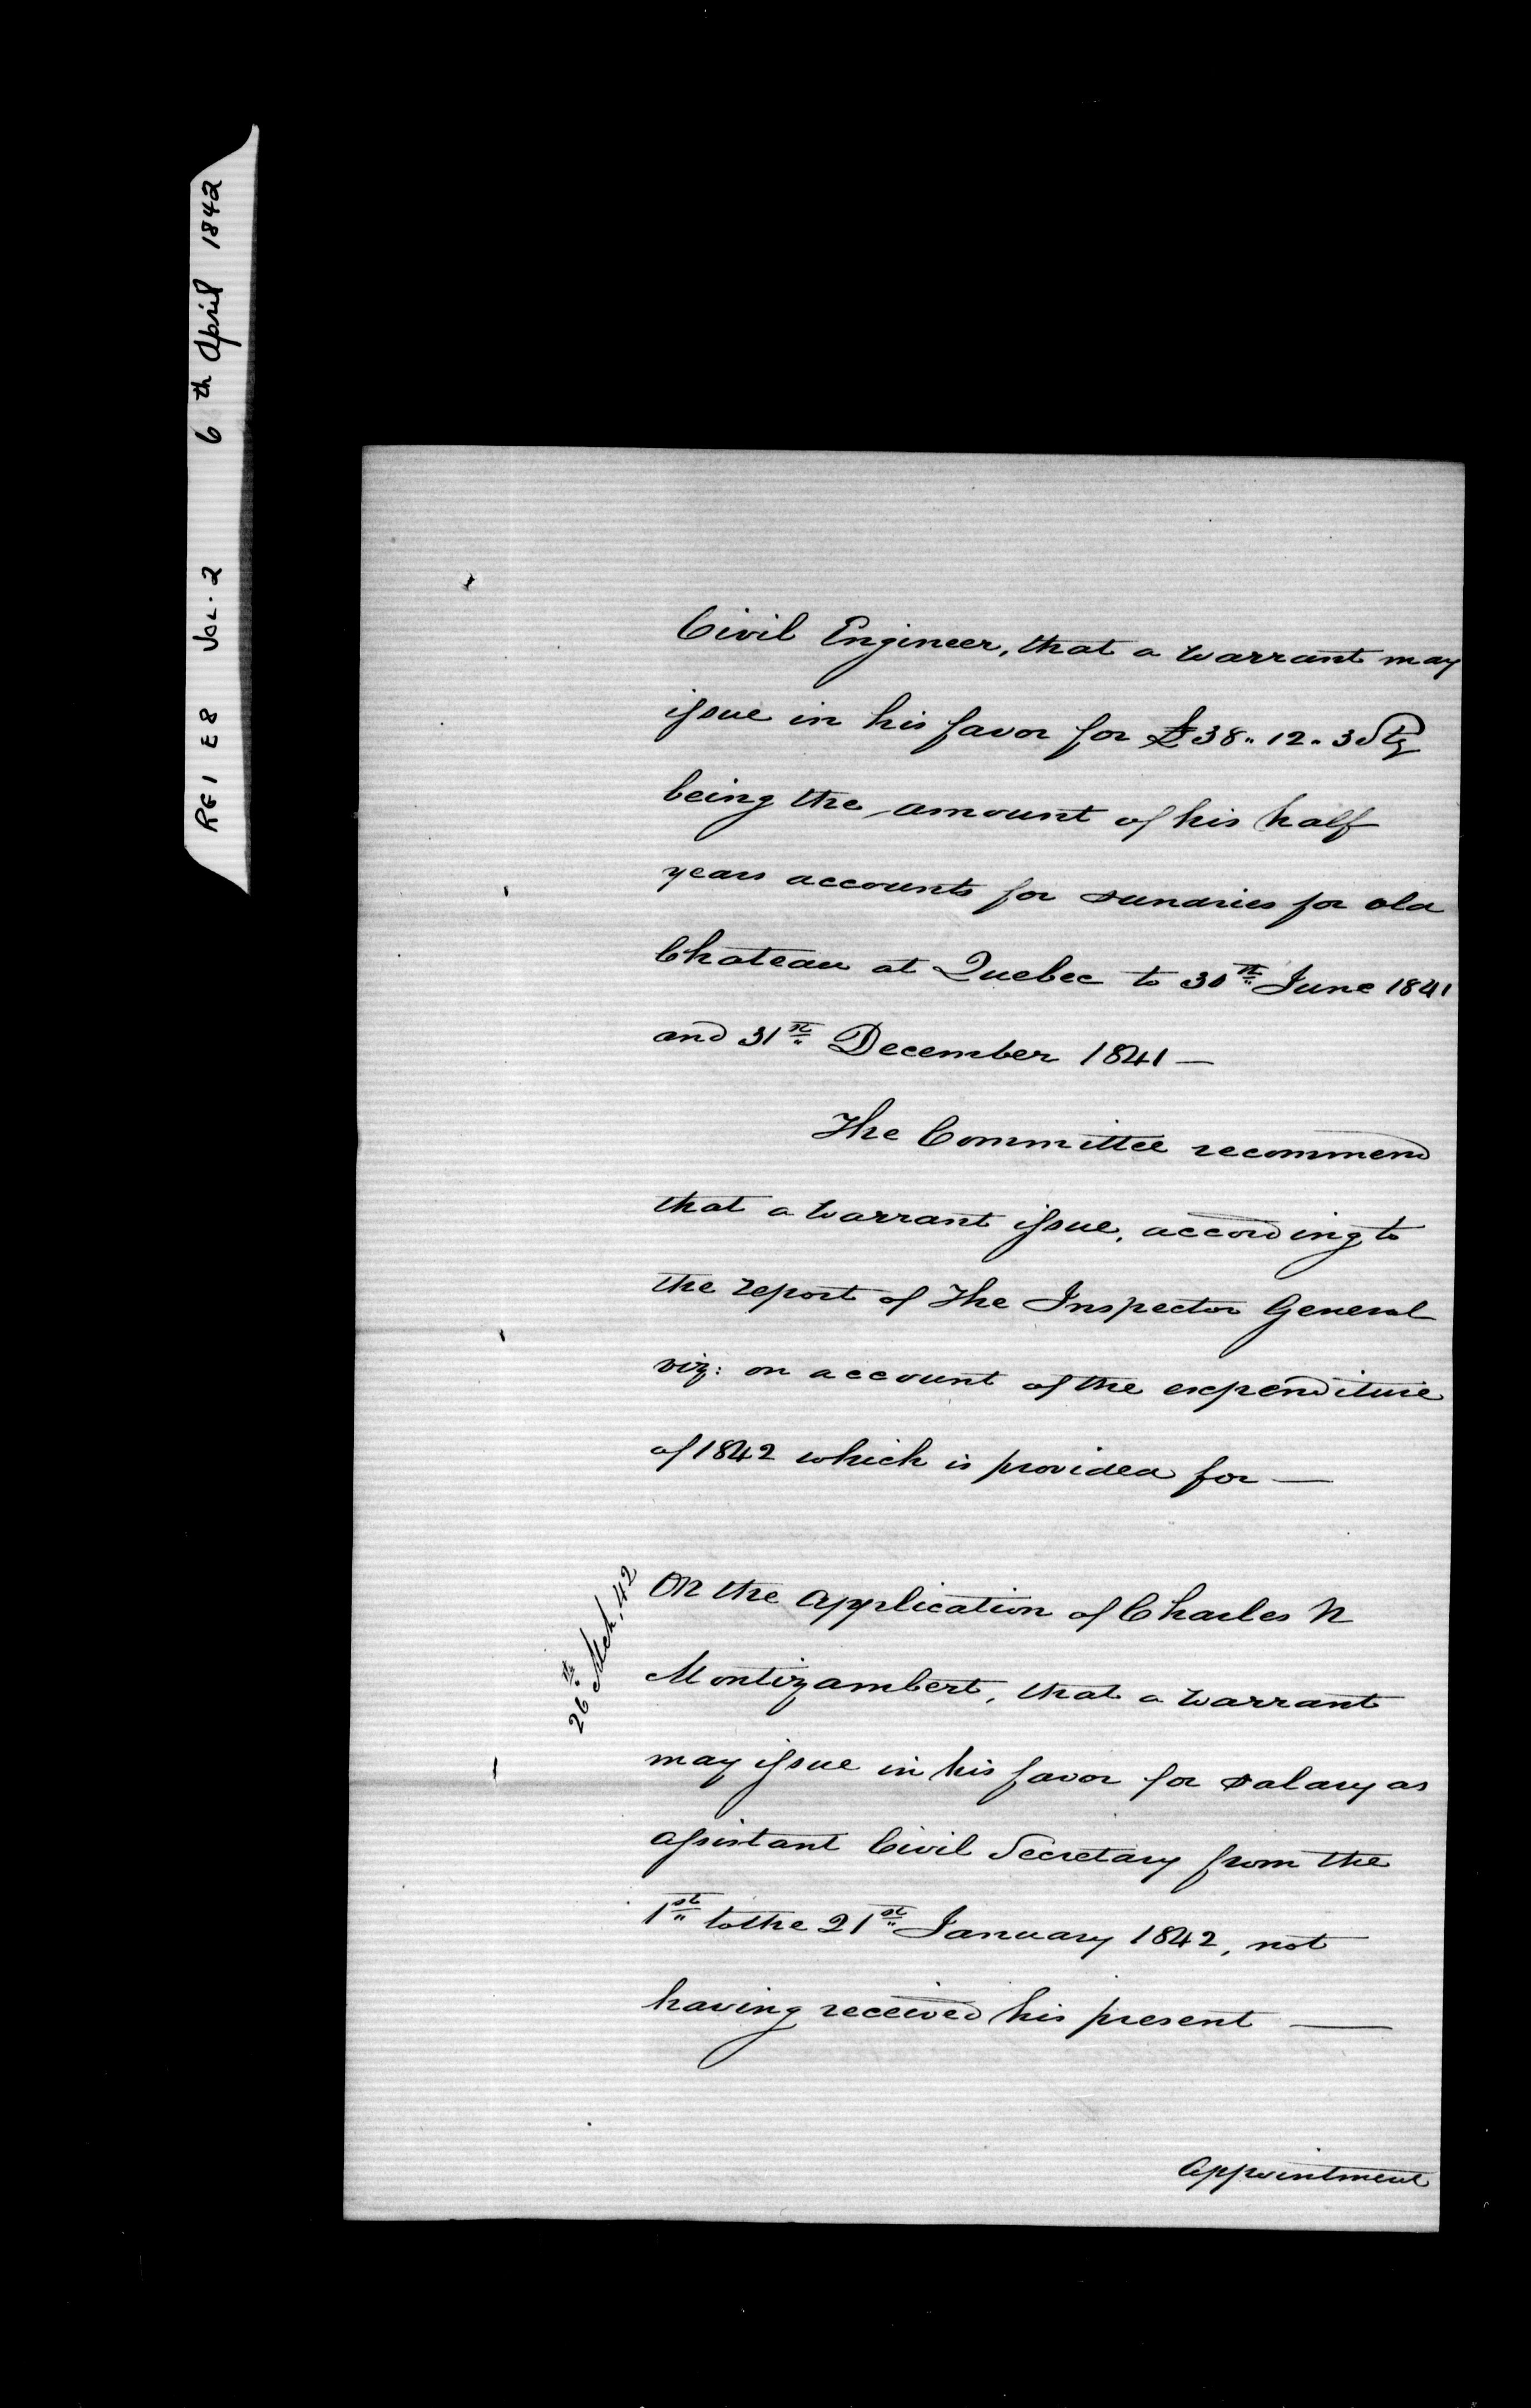 RG1 E8 VOL. 2 6th April 1842
Civil Engineer, that a Warrant may
issue in his favor for £38.. 12.. 3 Stg
being the amount of his half
years accounts for sundries for old
Chateau at Quebec to 30th June 1841
and 31st December 1841 —
The Committee recommend
that a Warrant issue, according to
the report of The Inspector General
viz: on account of the expenditure
of 1842 which is provided for —
26th Mch, 42
On the Application of Charles N
Montizambert, that a Warrant
may issue in his favor for salary as
assistant Civil Secretary from the
1st to the 21st January 1842, not
having received his present —
Appointment